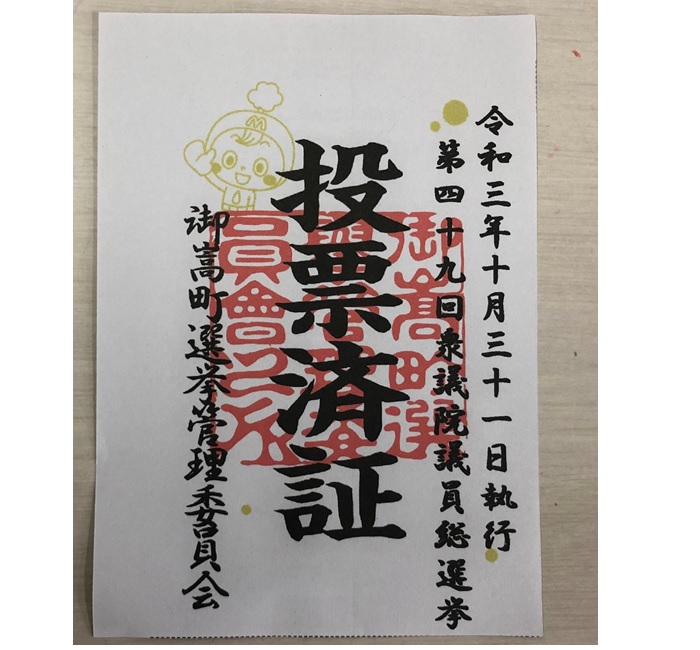 令和三年十月三十一日執行
第四十九回衆議院議員総選挙
投票済証
御嵩町選挙管理委員会
御嵩町選
挙管理委
員會之印
M